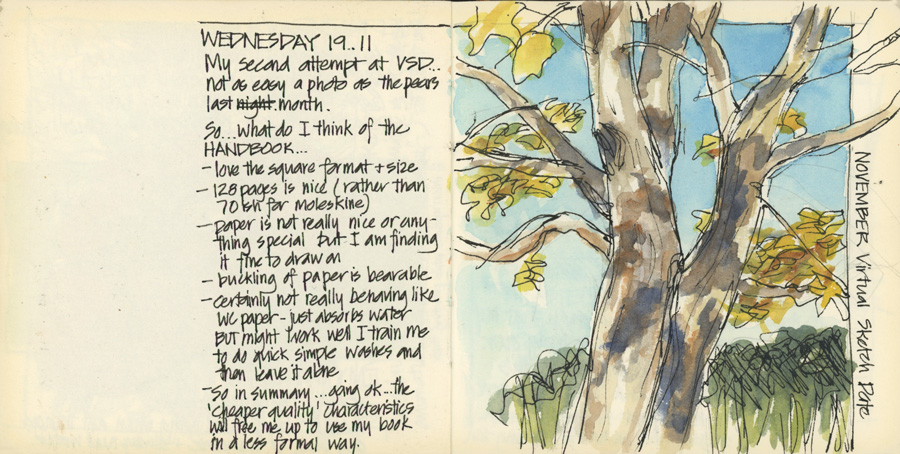 WEDNESDAY 19..11
My second attempt at VSD..
not as easy a photo as the pears
last night month.
So...what do I think of the
HANDBOOK...
- love the square format + size
- 128 pages is nice (rather than
70ish for moleskine)
- paper is not really nice or any-
thing special but I am finding
it fine to draw on
- buckling of paper is bearable
- certainly not really behaving like
WC paper - just absorbs water
BUT might work well I train me
to do quick simple washes and
then leave it alone
- So in summary ...going ok...the
'cheaper quality' characteristics
will free me up to use my book
in a less formal way.
NOVEMBER Virtual Sketch Date